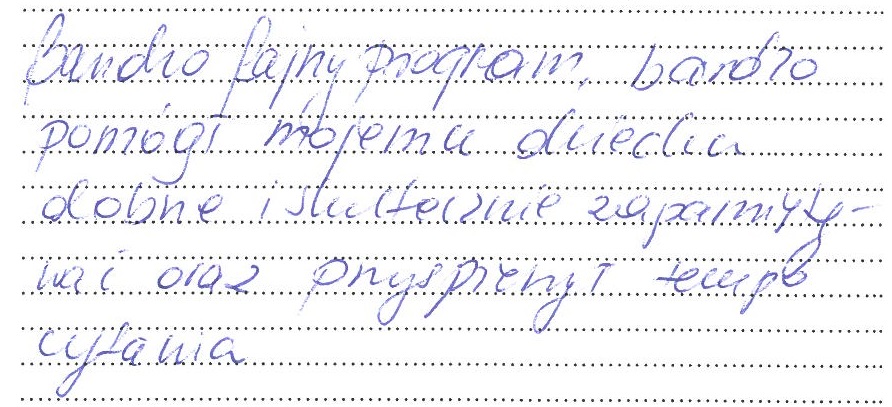 Bardzo fajny program, bardzo
pomógł mojemu dziecku
dobrze i skutecznie zapamięty-
wać oraz przyspieszył tempo
cytania